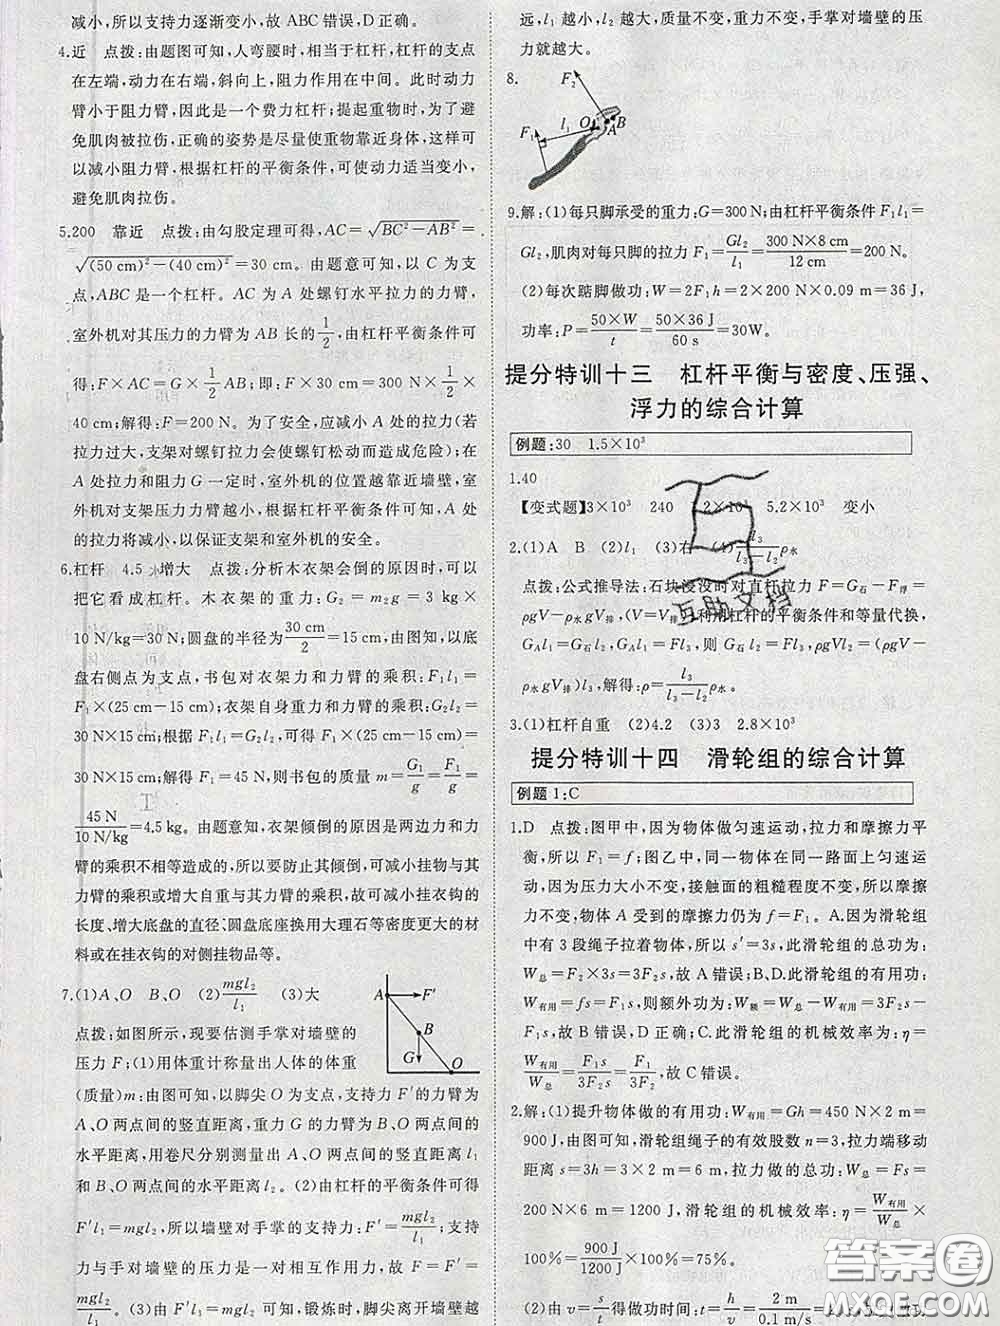 减小,所以支持力逐渐变小,故 ABC 错误,D 正确。
4.近　点拨:由题图可知,人弯腰时,相当于杠杆,杠杆的支点
在左端,动力在右端,斜向上,阻力作用在中间。此时动力
臂小于阻力臂,因此是一个费力杠杆;提起重物时,为了避
免肌肉被拉伤,正确的姿势是尽量使重物靠近身体,这样可
以减小阻力臂,根据杠杆的平衡条件,可使动力适当变小,
避免肌肉拉伤。
5.200　靠近　点拨:由勾股定理可得,AC=√(BC²-AB²)=
√((50 cm)²-(40 cm)²)=30 cm。由题意可知,以 C 为支
点,ABC 是一个杠杆。AC 为 A 处螺钉水平拉力的力臂,
室外机对其压力的力臂为 AB 长的 1/2,由杠杆平衡条件可
得:F×AC=G×1/2 AB;即:F×30 cm=300 N×1/2×
40 cm;解得:F=200 N。为了安全,应减小 A 处的拉力(若
拉力过大,支架对螺钉拉力会使螺钉松动而造成危险);在
A 处拉力和阻力 G 一定时,室外机的位置越靠近墙壁,室
外机对支架压力力臂越小,根据杠杆平衡条件可知,A 处
的拉力将减小,以保证支架和室外机的安全。
6.杠杆　4.5　增大　点拨:分析木衣架会倒的原因时,可以
把它看成杠杆。木衣架的重力:G₂=m₂g=3 kg×
10 N/kg=30 N;圆盘的半径为 30 cm/2=15 cm,由图知,以底
盘右侧点为支点,书包对衣架力和力臂的乘积:F₁l₁=
F₁×(25 cm-15 cm);衣架自身重力和力臂的乘积:G₂l₂=
30 N×15 cm;根据 F₁l₁=G₂l₂,可得 F₁×(25 cm-15 cm)=
30 N×15 cm;解得 F₁=45 N,则书包的质量 m=G₁/g=F₁/g=
45 N/10 N/kg=4.5 kg。由题意知,衣架倾倒的原因是两边力和力
臂的乘积不相等造成的,所以要防止其倾倒,可减小挂物与其
力臂的乘积或增大自重与其力臂的乘积,故可减小挂衣钩的
长度、增大底盘的直径、圆盘底座换用大理石等密度更大的材
料或在挂衣钩的对侧挂物品等。
7.(1)A、O　B、O　(2)mgl₂/l₁　(3)大
点拨:如图所示,现要估测手掌对墙壁的
压力 F;(1)用体重计称量出人体的体重
A F′ B G O
(质量)m;由图可知,以脚尖 O 为支点,支持力 F′的力臂为
A、O 两点间的竖直距离,重力 G 的力臂为 B、O 两点间的
水平距离,用卷尺分别测量出 A、O 两点间的竖直距离 l₁
和 B、O 两点间的水平距离 l₂。(2)由杠杆的平衡条件可得
F′l₁=mgl₂,所以墙壁对手掌的支持力:F′=mgl₂/l₁;支持
力与手对墙壁的压力是一对相互作用力,故 F=F′=
mgl₂/l₁。(3)由(2)可知,锻炼时,脚尖离开墙壁越
远,l₁越小,l₂越大,质量不变,重力不变,手掌对墙壁的压
力就越大。
8.
F₂ F₁ l₁ O A B
9.解:(1)每只脚承受的重力:G=300 N;由杠杆平衡条件 F₁l₁=
Gl₂,肌肉对每只脚的拉力 F₁=Gl₂/l₁=300 N×8 cm/12 cm=200 N。
(2)每次踮脚做功:W=2F₁h=2×200 N×0.09 m=36 J,
功率:P=50×W/t=50×36 J/60 s=30W。
提分特训十三　杠杆平衡与密度、压强、
浮力的综合计算
例题:30　1.5×10³
1.40
【变式题】3×10³　240　×10³　5.2×10³　变小
2.(1)A　B　(2)l₁　(3)右　(4)l₃/l₃-l₂ ρ水
点拨:公式推导法:石块浸没时对直杆拉力 F=G石-F浮=
ρgV-ρ水gV排,利用杠杆的平衡条件和等量代换,
G_A l₁=G石l₂=Fl₃,则 G石l₂=Fl₃,ρgVl₂=(ρgV-
ρ水gV排)l₃,解得:ρ=l₃/l₃-l₂ ρ水。
3.(1)杠杆自重　(2)4.2　(3)3　2.8×10³
提分特训十四　滑轮组的综合计算
例题 1:C
1.D　点拨:图甲中,因为物体做匀速运动,拉力和摩擦力平
衡,所以 F₁=f;图乙中,同一物体在同一路面上匀速运
动,因为压力大小不变,接触面的粗糙程度不变,所以摩擦
力不变,物体 A 受到的摩擦力仍为 f=F₁。A.因为滑轮组
中有 3 段绳子拉着物体,所以 s′=3s,此滑轮组的总功:
W总=F₂×3s=3F₂s,故 A 错误;B、D.此滑轮组的有用功:
W有用=fs=F₁s,则额外功:W额=W总-W有用=3F₂s-
F₁s,故 B 错误,D 正确;C.此滑轮组的机械效率为:η=
W有用/W总=F₁s/3F₂s=F₁/3F₂,故 C 错误。
2.解:(1)提升物体做的有用功:W有用=Gh=450 N×2 m=
900 J,由图可知,滑轮组绳子的有效股数 n=3,拉力端移动
距离 s=3h=3×2 m=6 m,拉力做的总功:W总=Fs=
200 N×6 m=1200 J,滑轮组的机械效率:η=W有用/W总×
100%=900 J/1200 J×100%=75%。
(2)由 v=s/t 得做功时间:t=h/v=2 m/0.1 m/s=
互助文档
答案圈